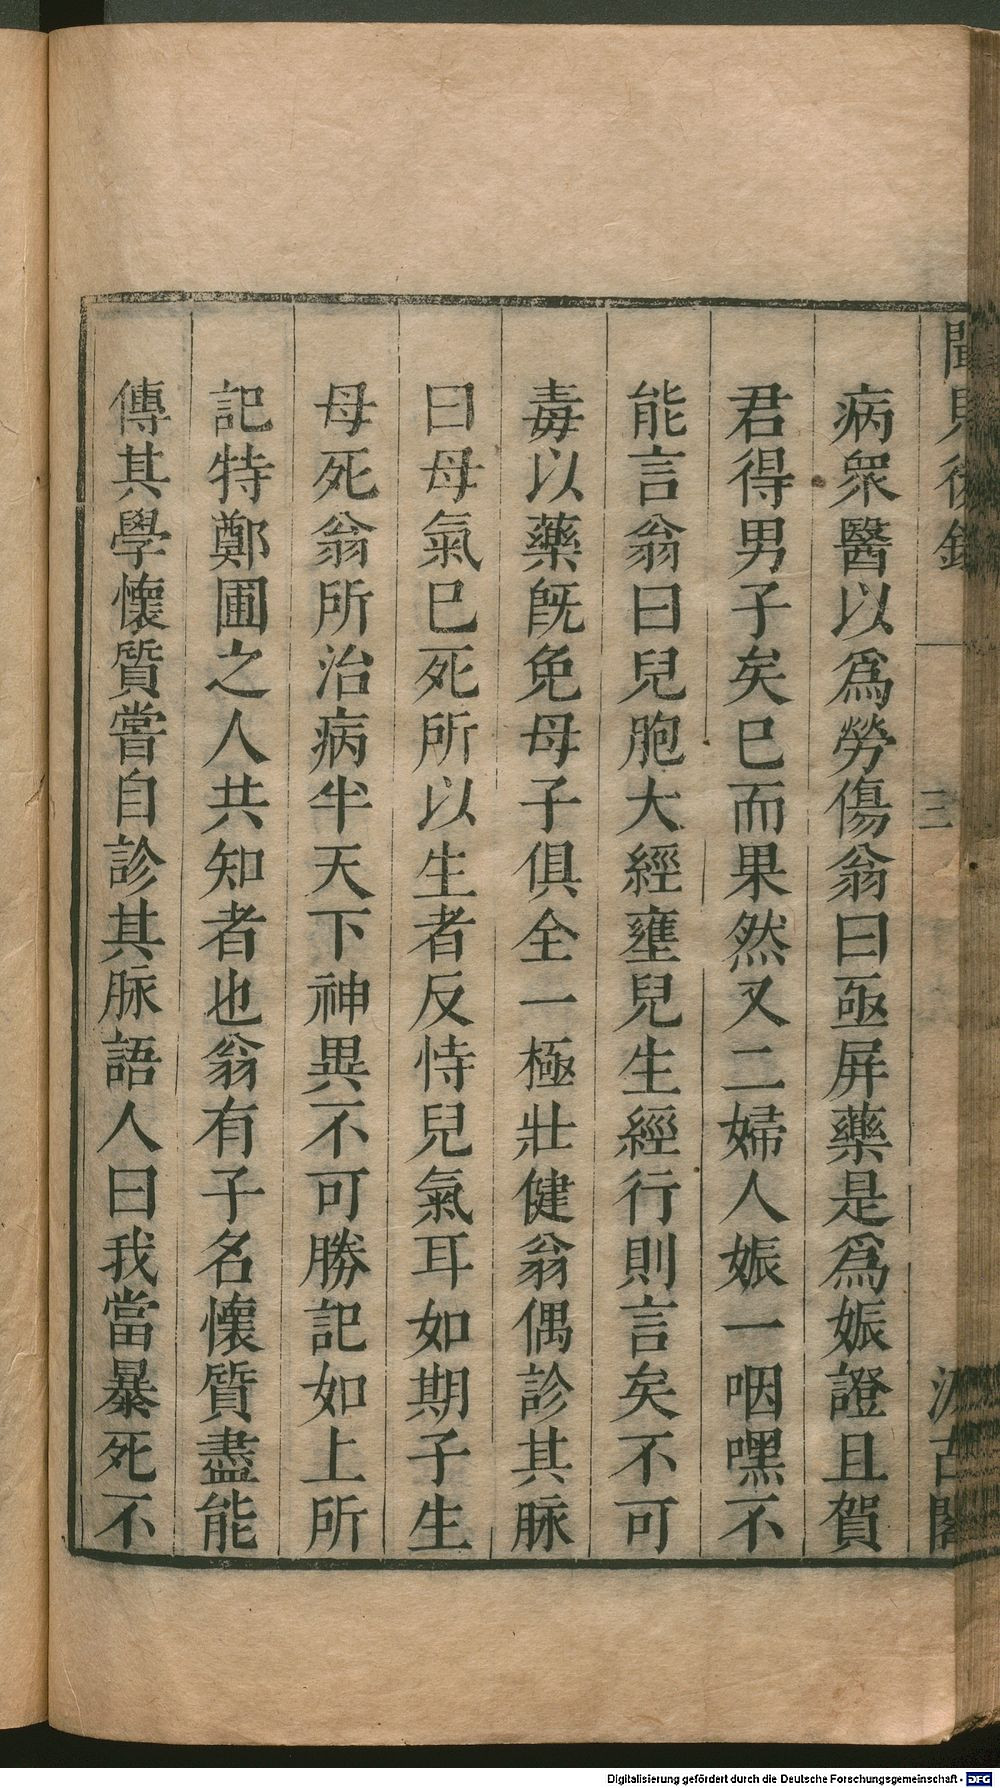 聞見後錄
三
汲古閣
病衆醫以爲勞傷翁曰亟屏藥是爲娠證且賀
君得男子矣巳而果然又二婦人娠一咽嘿不
能言翁曰兒胞大經壅兒生經行則言矣不可
毒以藥旣免母子俱全一極壯健翁偶診其脉
曰母氣巳死所以生者反恃兒氣耳如期子生
母死翁所治病半天下神異不可勝記如上所
記特鄭圃之人共知者也翁有子名懷質盡能
傳其學懷質嘗自診其脉語人曰我當暴死不
Digitalisierung gefördert durch die Deutsche Forschungsgemeinschaft - DFG